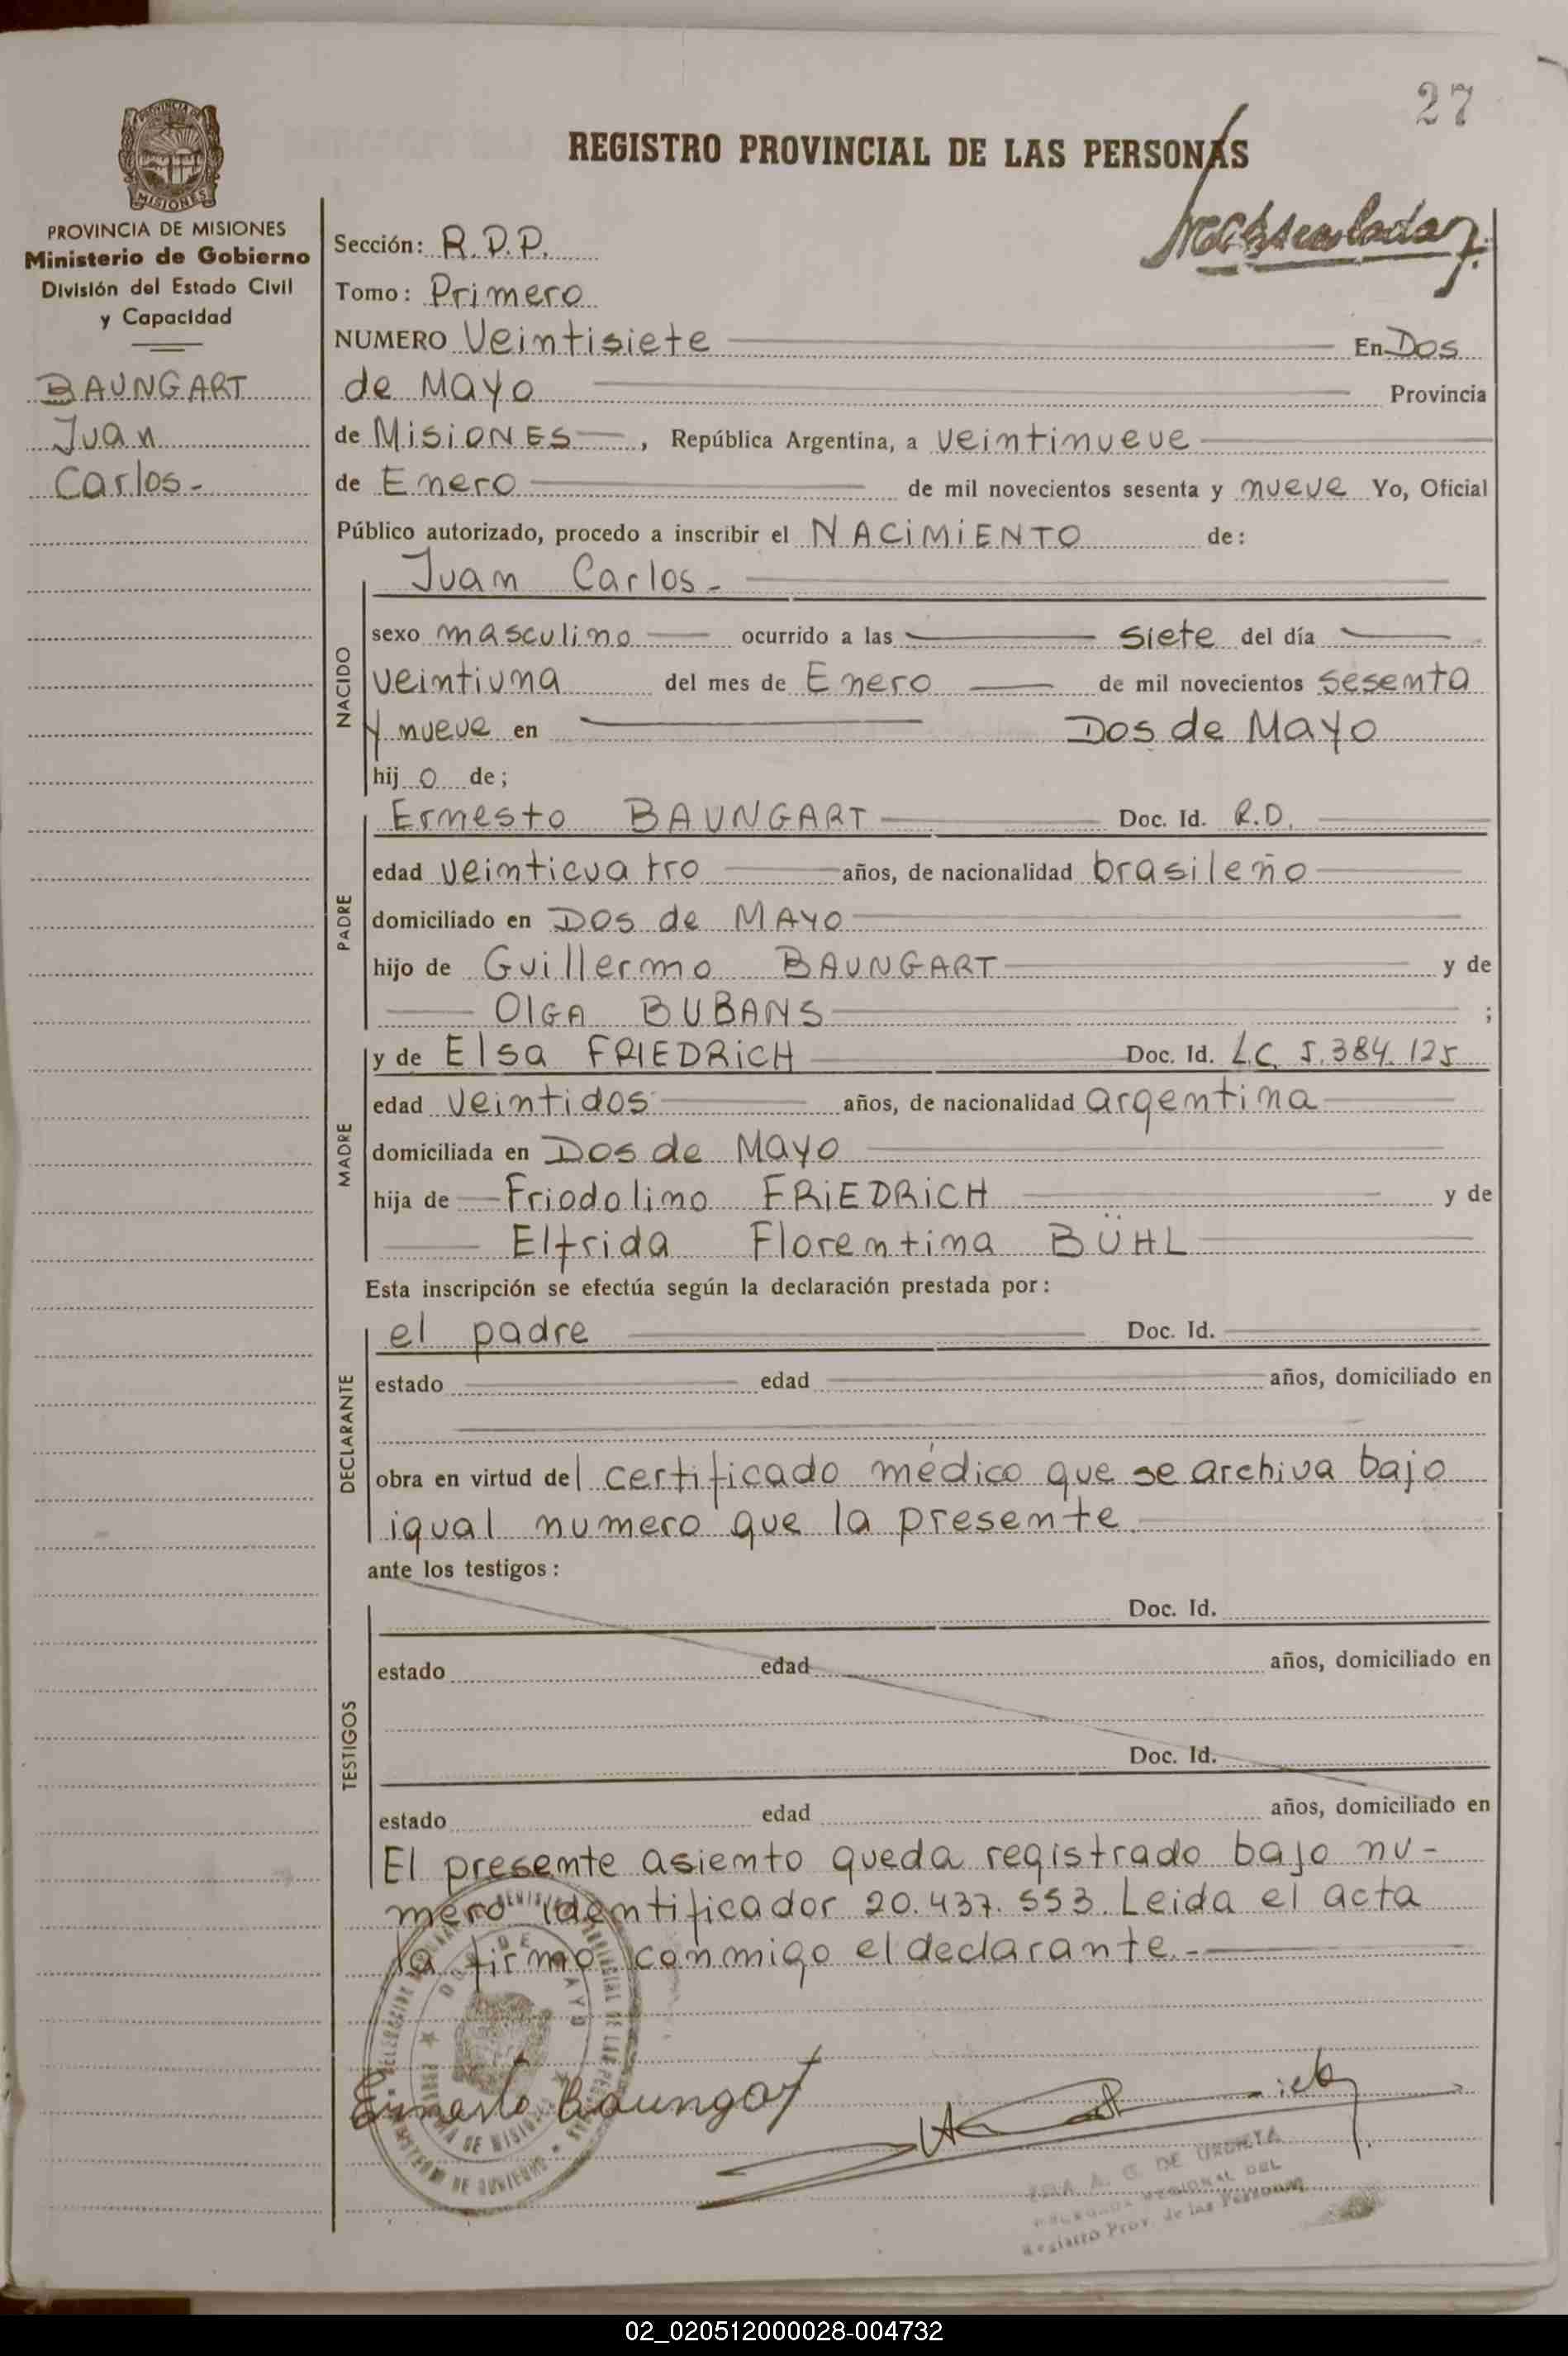 27
REGISTRO PROVINCIAL DE LAS PERSONAS
MISIONES
PROVINCIA DE MISIONES
Ministerio de Gobierno
División del Estado Civil
y Capacidad
BAUNGART
Juan
Carlos.-
Sección: R.D.P.
Tomo: Primero
NUMERO Veintisiete En Dos
de Mayo Provincia
de MISIONES, República Argentina, a veintinueve
de Enero de mil novecientos sesenta y nueve Yo, Oficial
Público autorizado, procedo a inscribir el NACIMIENTO de:
NACIDO
Juan Carlos.-
sexo masculino ocurrido a las siete del día
veintiuna del mes de Enero de mil novecientos sesenta
y nueve en Dos de Mayo
hijo de;
PADRE
Ernesto BAUNGART Doc. Id. R.D.
edad veinticuatro años, de nacionalidad brasileño
domiciliado en Dos de MAYO
hijo de Guillermo BAUNGART y de
OLGA BUBANS ;
MADRE
y de Elsa FRIEDRICH Doc. Id. L.C. 5.384.125
edad veintidos años, de nacionalidad argentina
domiciliada en Dos de Mayo
hija de Friodolino FRIEDRICH y de
Elfrida Florentina BÜHL
Esta inscripción se efectúa según la declaración prestada por:
DECLARANTE
el padre Doc. Id.
estado edad años, domiciliado en
obra en virtud del certificado médico que se archiva bajo
igual numero que la presente.
ante los testigos:
TESTIGOS
Doc. Id.
estado edad años, domiciliado en
Doc. Id.
estado edad años, domiciliado en
El presente asiento queda registrado bajo nu-
mero identificador 20.437.553. Leida el acta
la firmo conmigo el declarante.-
DOS DE MAYO
Ernesto Baungart
A. G. DE URDIETA
REGIONAL DEL
Registro Prov. de las Personas
02_020512000028-004732